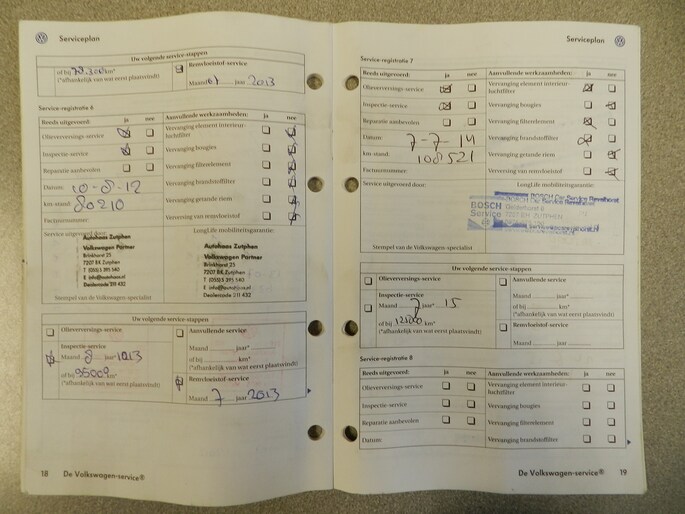 Serviceplan
Uw volgende service-stappen
of bij km*
(*afhankelijk van wat eerst plaatsvindt)
Remvloeistof-service
Maand jaar 2013
Service-registratie 6
Reeds uitgevoerd: ja nee
Olieverversings-service
Inspectie-service
Reparatie aanbevolen
Datum: 10-8-12
km-stand: 80210
Factuurnummer:
Aanvullende werkzaamheden: ja nee
Vervanging element interieur-
luchtfilter
Vervanging bougies
Vervanging filterelement
Vervanging brandstoffilter
Vervanging getande riem
Verversing van remvloeistof
Service uitgevoerd door:
LongLife mobiliteitsgarantie:
Autohaas Zutphen
Volkswagen Partner
Brinkhorst 25
7207 BX Zutphen
Autohaas Zutphen
Volkswagen Partner
Brinkhorst 25
7207 BX Zutphen
Stempel van de Volkswagen-specialist
Uw volgende service-stappen
Olieverversings-service
Inspectie-service
Maand 8 jaar 2013
of bij 95000 km*
(*afhankelijk van wat eerst plaatsvindt)
Aanvullende service
Maand jaar*
of bij km*
(*afhankelijk van wat eerst plaatsvindt)
Remvloeistof-service
Maand 7 jaar 2013
18 De Volkswagen-service®
Serviceplan
Service-registratie 7
Reeds uitgevoerd: ja nee
Olieverversings-service
Inspectie-service
Reparatie aanbevolen
Datum: 7-7-14
km-stand: 108521
Factuurnummer:
Aanvullende werkzaamheden: ja nee
Vervanging element interieur-
luchtfilter
Vervanging bougies
Vervanging filterelement
Vervanging brandstoffilter
Vervanging getande riem
Verversing van remvloeistof
Service uitgevoerd door:
LongLife mobiliteitsgarantie:
BOSCH
Service
BOSCH Car Service
Stempel van de Volkswagen-specialist
Uw volgende service-stappen
Olieverversings-service
Inspectie-service
Maand 7 15
of bij km*
(*afhankelijk van wat eerst plaatsvindt)
Aanvullende service
Maand jaar*
of bij km*
(*afhankelijk van wat eerst plaatsvindt)
Remvloeistof-service
Maand jaar
Service-registratie 8
Reeds uitgevoerd: ja nee
Olieverversings-service
Inspectie-service
Reparatie aanbevolen
Datum:
Aanvullende werkzaamheden: ja nee
Vervanging element interieur-
luchtfilter
Vervanging bougies
Vervanging filterelement
Vervanging brandstoffilter
De Volkswagen-service® 19